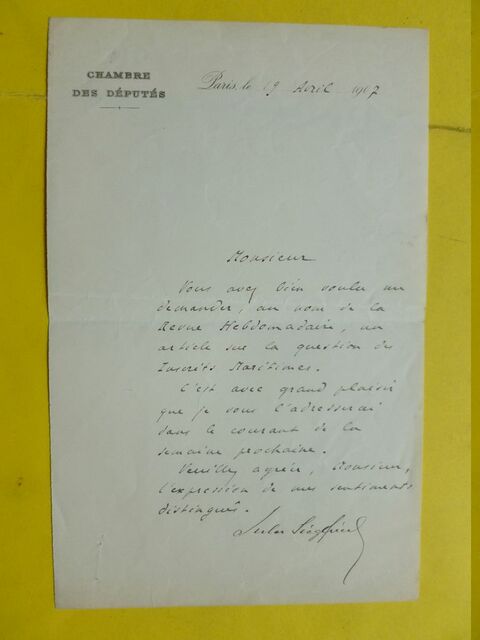 CHAMBRE
DES DÉPUTÉS
Paris, le 19 Avril 1907
Monsieur
Vous avez bien voulu me
demander, au nom de la
Revue Hebdomadaire, un
article sur la question des
Inscrits Maritimes.
C'est avec grand plaisir
que je vous l'adresserai
dans le courant de la
semaine prochaine.
Veuillez agréer, Monsieur,
l'expression de mes sentiments
distingués.
Jules Siegfried